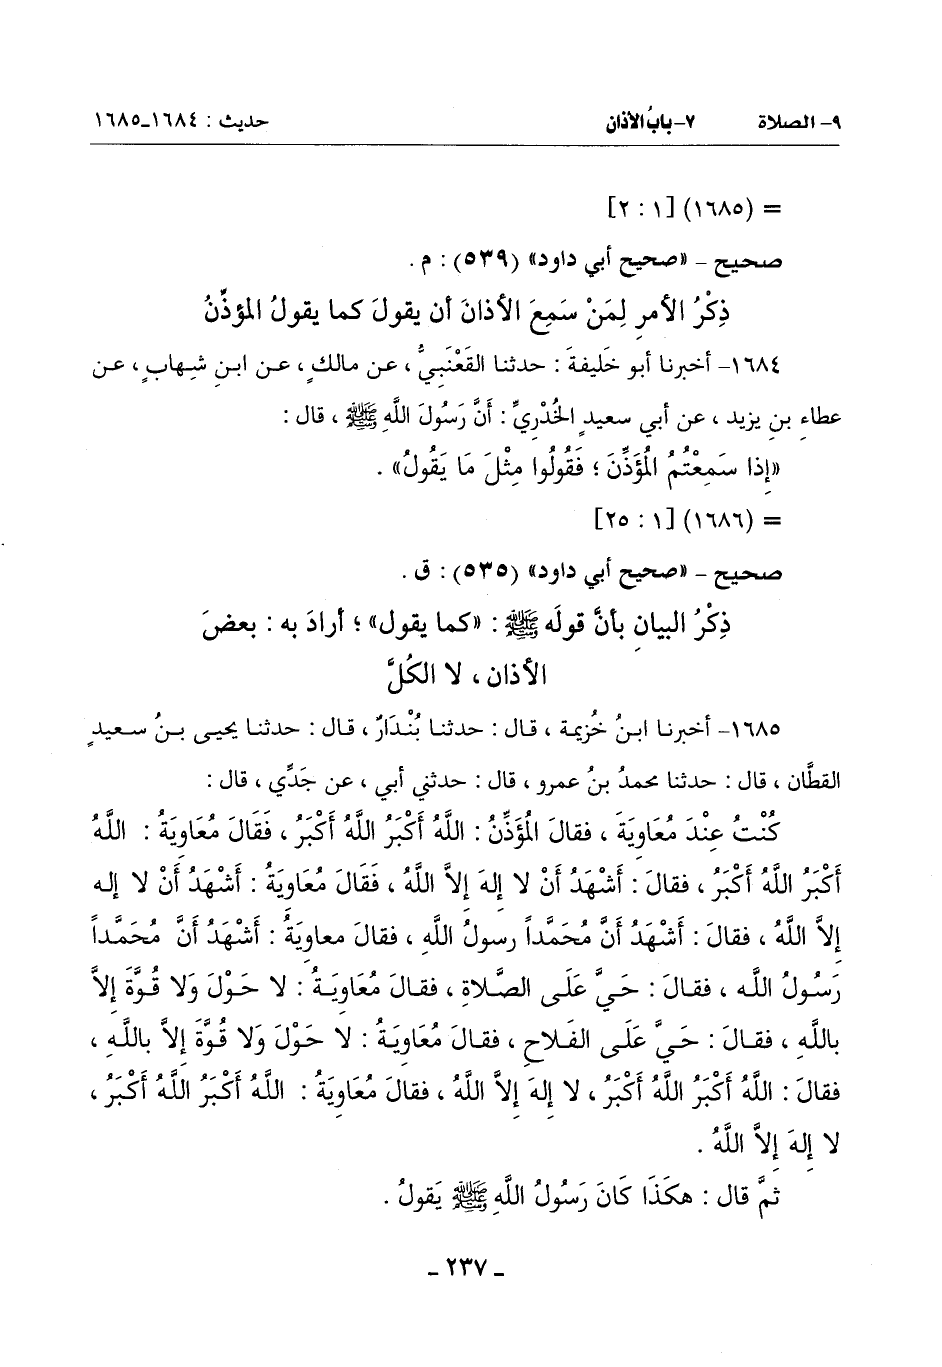 ٩- الصلاة ٧-بابُ الأذان حديث : ١٦٨٤-١٦٨٥
= (١٦٨٥) [١ : ٢]
صحيح - «صحيح أبي داود» (٥٣٩) : م .
ذِكْرُ الأمرِ لِمَنْ سَمِعَ الأذانَ أن يقولَ كما يقولُ المؤذِّنُ
١٦٨٤- أخبرنا أبو خَليفةَ : حدثنا القَعْنَبيُّ ، عن مالكٍ ، عن ابنِ شِهابٍ ، عن
عطاءِ بنِ يزيد ، عن أبي سعيدٍ الخُدْريِّ : أَنَّ رَسُولَ اللَّهِ ﷺ ، قال :
«إذا سَمِعْتُمُ المُؤَذِّنَ ؛ فَقُولُوا مِثْلَ مَا يَقُولُ» .
= (١٦٨٦) [١ : ٢٥]
صحيح - «صحيح أبي داود» (٥٣٥) : ق .
ذِكْرُ البيانِ بأنَّ قولَه ﷺ : «كما يقول» ؛ أرادَ به : بعضَ
الأذان ، لا الكُلَّ
١٦٨٥- أخبرنا ابنُ خُزيمة ، قال : حدثنا بُنْدَارٌ ، قال : حدثنا يحيى بنُ سعيدٍ
القطَّان ، قال : حدثنا محمدُ بنُ عمرو ، قال : حدثني أبي ، عن جَدِّي ، قال :
كُنْتُ عِنْدَ مُعَاوِيَةَ ، فقالَ المُؤَذِّنُ : اللَّهُ أَكْبَرُ اللَّهُ أَكْبَرُ ، فَقَالَ مُعَاوِيَةُ : اللَّهُ
أَكْبَرُ اللَّهُ أَكْبَرُ ، فقالَ : أَشْهَدُ أَنْ لا إلهَ إلاَّ اللَّهُ ، فَقَالَ مُعَاوِيَةُ : أَشْهَدُ أَنْ لا إله
إلاَّ اللَّهُ ، فقالَ : أَشْهَدُ أَنَّ مُحَمَّداً رسولُ اللَّهِ ، فقالَ معاويَةُ : أَشْهَدُ أَنَّ مُحَمَّداً
رَسُولُ اللَّهِ ، فقالَ : حَيَّ عَلَى الصَّلاةِ ، فقالَ مُعَاوِيَةُ : لا حَوْلَ وَلا قُوَّةَ إلاَّ
باللَّهِ ، فقالَ : حَيَّ عَلَى الفَلاحِ ، فقالَ مُعَاوِيَةُ : لا حَوْلَ وَلا قُوَّةَ إلاَّ باللَّهِ ،
فقالَ : اللَّهُ أَكْبَرُ اللَّهُ أَكْبَرُ ، لا إلهَ إلاَّ اللَّهُ ، فقالَ مُعَاوِيَةُ : اللَّهُ أَكْبَرُ اللَّهُ أَكْبَرُ ،
لا إلهَ إلاَّ اللَّهُ .
ثمَّ قال : هكَذَا كَانَ رَسُولُ اللَّهِ ﷺ يَقولُ .
- ٢٣٧ -